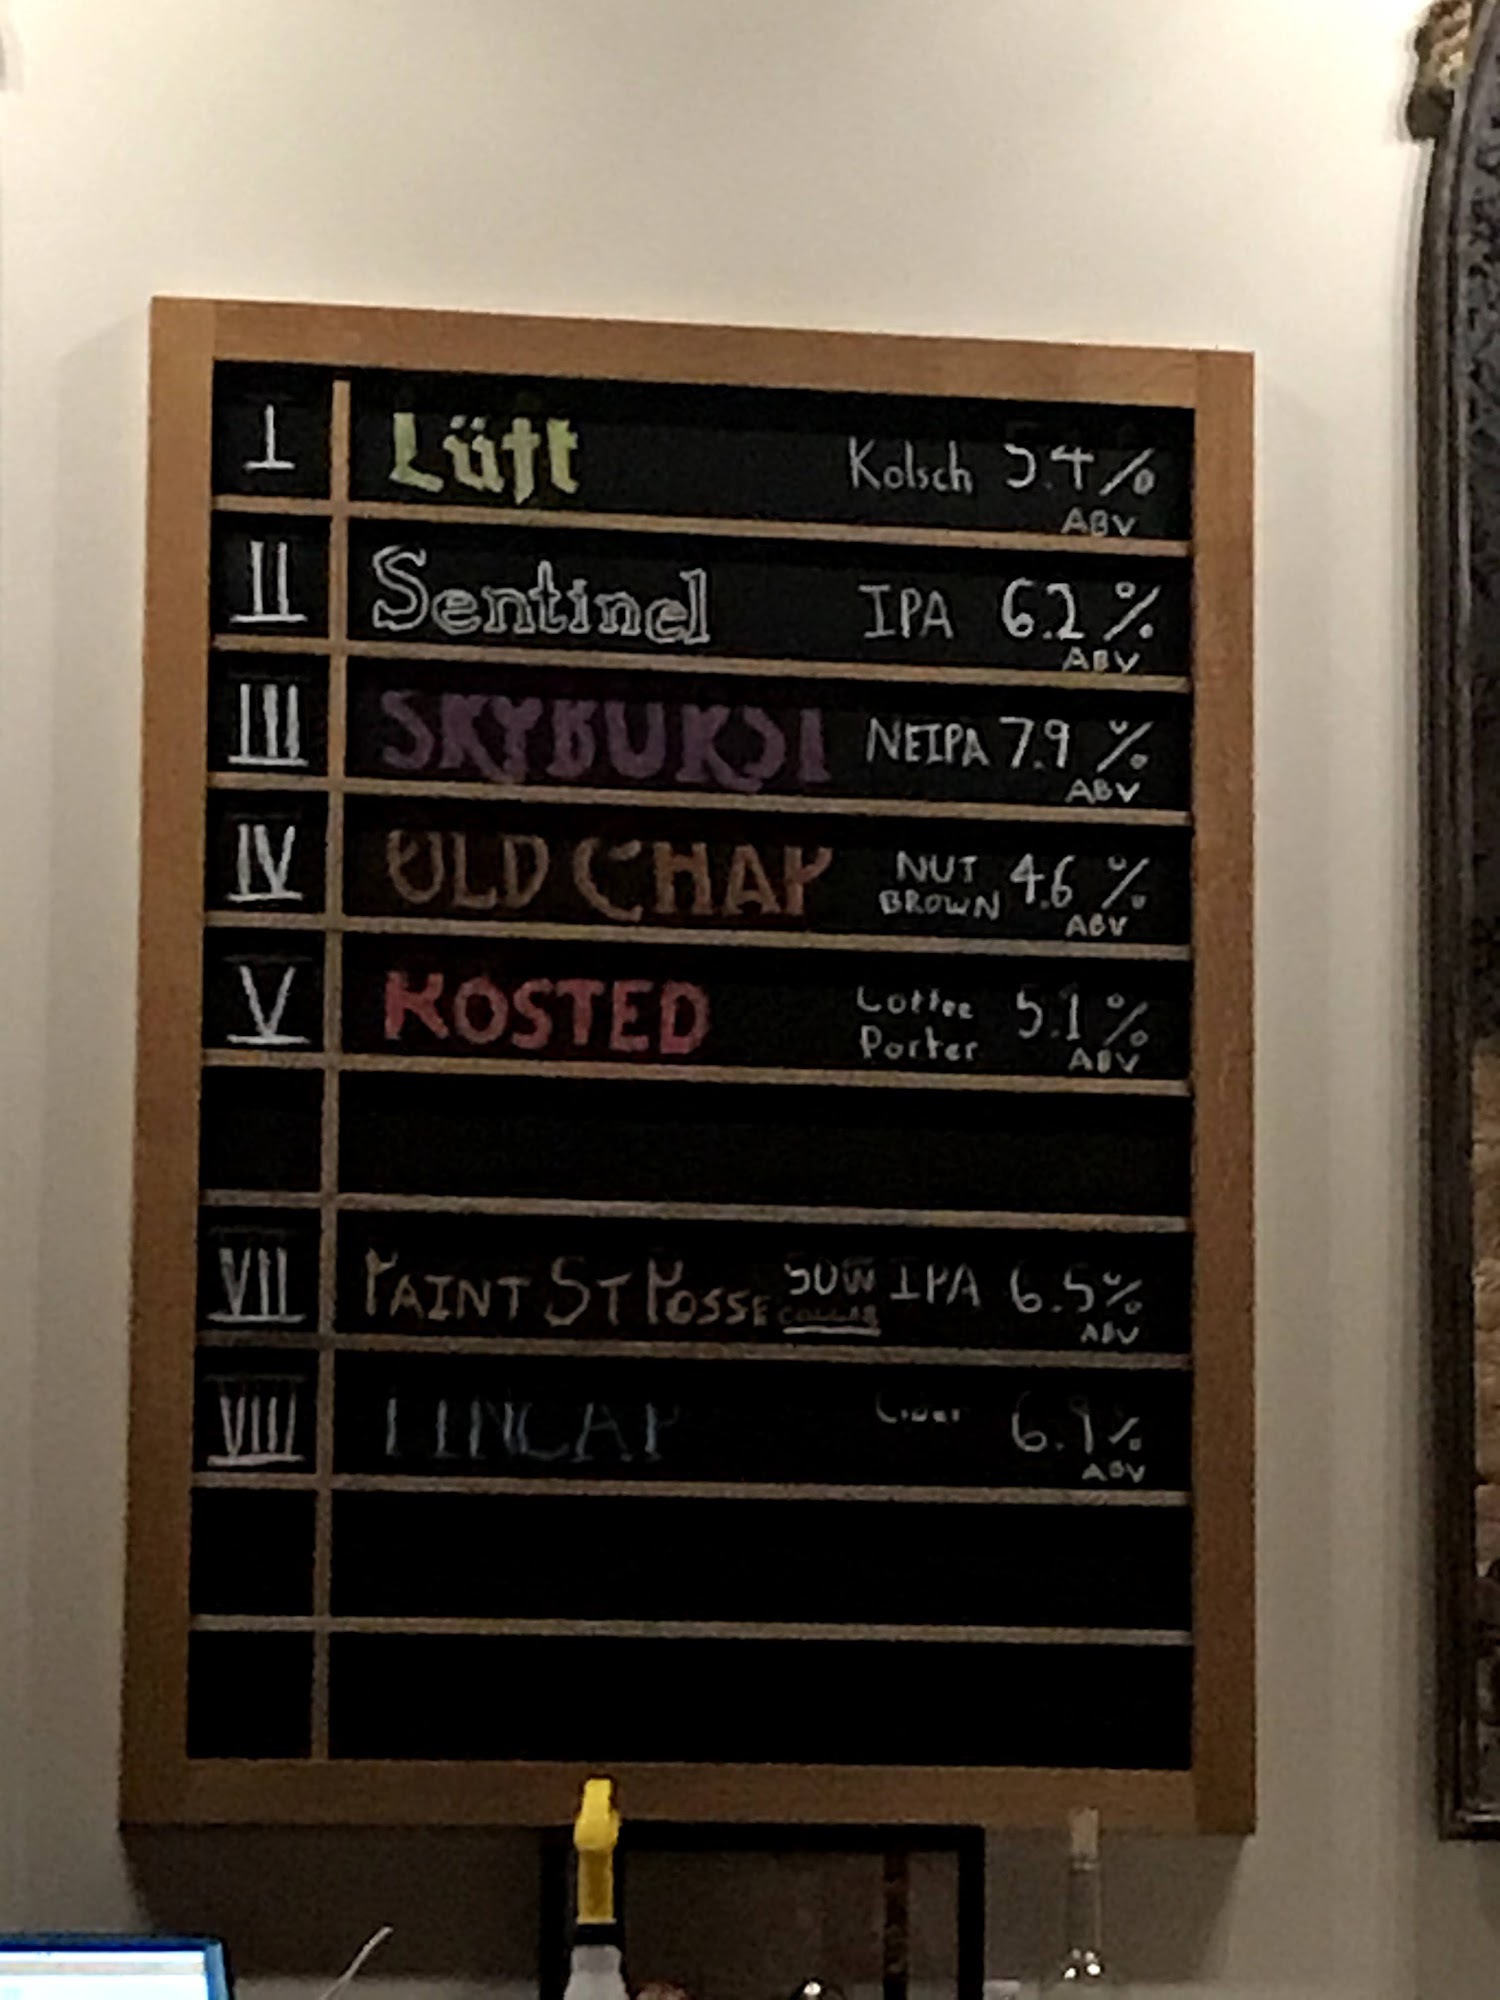 I Lüft Kolsch 5.4%
ABV
II Sentinel IPA 6.2%
ABV
III SKYBURST NEIPA 7.9%
ABV
IV OLD CHAP NUT BROWN 4.6%
ABV
V ROSTED Coffee Porter 5.1%
ABV
VII PAINT ST POSSE SOUR IPA 6.5%
COLLAB ABV
VIII Cider 6.9%
ABV